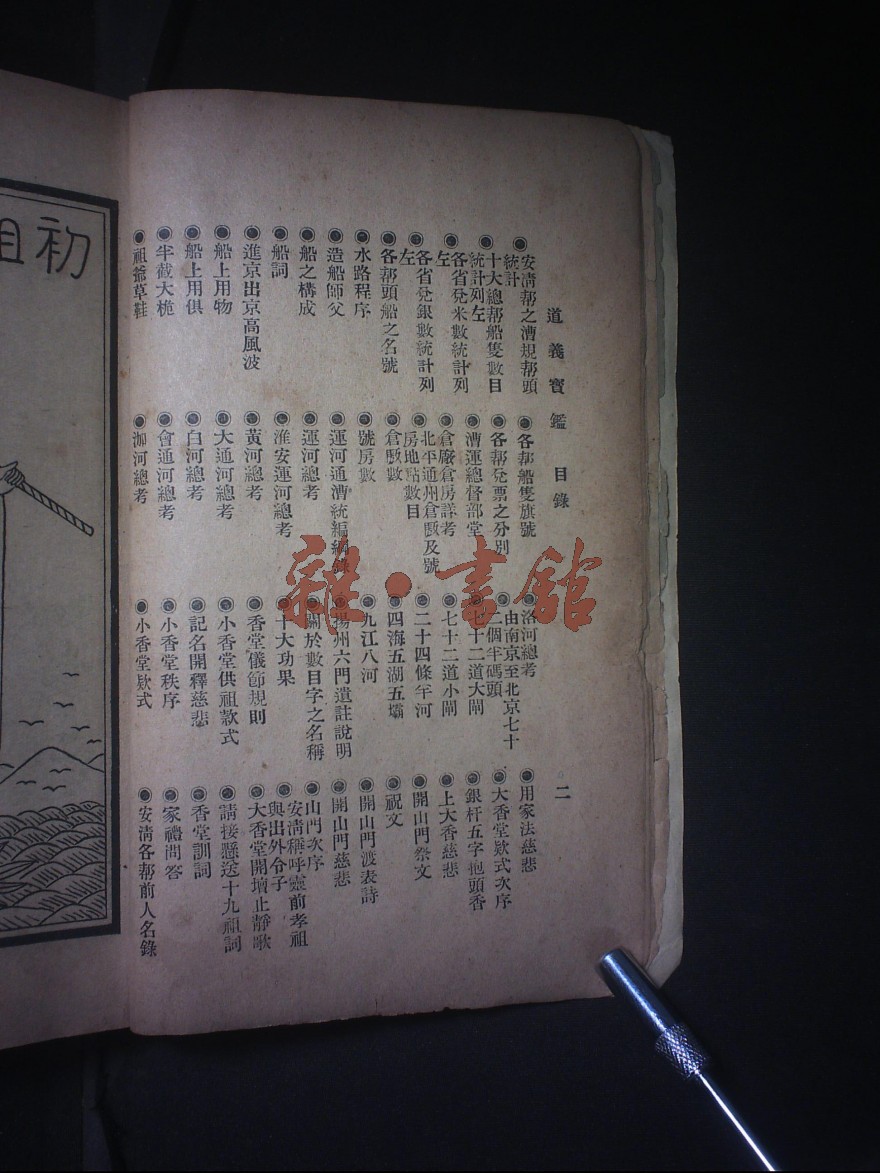 道義寶鑑 目錄 二
◉安淸帮之漕規帮頭
統計
◉十大總帮船隻數目
統計列左
◉各省兌米數統計列
左
◉各省兌銀數統計列
左
◉各帮頭船之名號
◉水路程序
◉造船師父
◉船之構成
◉船詞
◉進京出京高風波
◉船上用物
◉船上用俱
◉半截大桅
◉祖爺草鞋
◉各帮船隻旗號
◉各帮兌票之分別
◉漕運總督部堂
◉倉廠倉房詳考
◉北平通州倉廒及號
房地點數目
◉倉廒數
◉號房數
◉運河通漕統編
◉運河總考
◉淮安運河總考
◉黃河總考
◉大通河總考
◉白河總考
◉會通河總考
◉泇河總考
◉洛河總考
◉由南京至北京七十
二個半碼頭
◉七十二道大閘
◉七十二道小閘
◉二十四條半河
◉四海五湖五壩
◉九江八河
◉揚州六門遺註說明
◉關於數目字之名稱
◉十大功果
◉香堂儀節規則
◉小香堂供祖款式
◉記名開釋慈悲
◉小香堂秩序
◉小香堂欵式
◉用家法慈悲
◉大香堂欵式次序
◉銀杆五字抱頭香
◉上大香慈悲
◉開山門祭文
◉祝文
◉開山門渡表詩
◉開山門慈悲
◉山門次序
◉安淸稱呼靈前孝祖
與出外令子
◉大香堂開壇止靜歌
◉請接懸送十九祖詞
◉香堂訓詞
◉家禮問答
◉安淸各帮前人名錄
初祖
雜·書舘